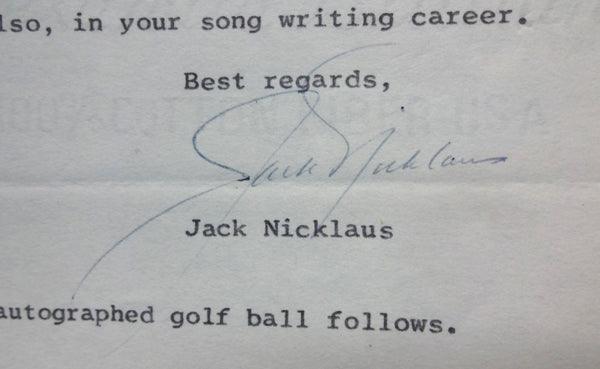 lso, in your song writing career.
Best regards,
Jack Nicklaus
Jack Nicklaus
autographed golf ball follows.